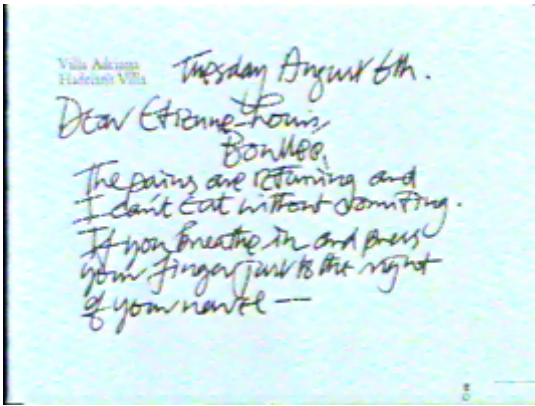 Villa Adriana
Hadrian's Villa
Tuesday August 6th.
Dear Etienne-Louis
Boullée,
The pains are returning and
I can't eat without vomiting.
If you breathe in and press
your finger just to the right
of your navel —